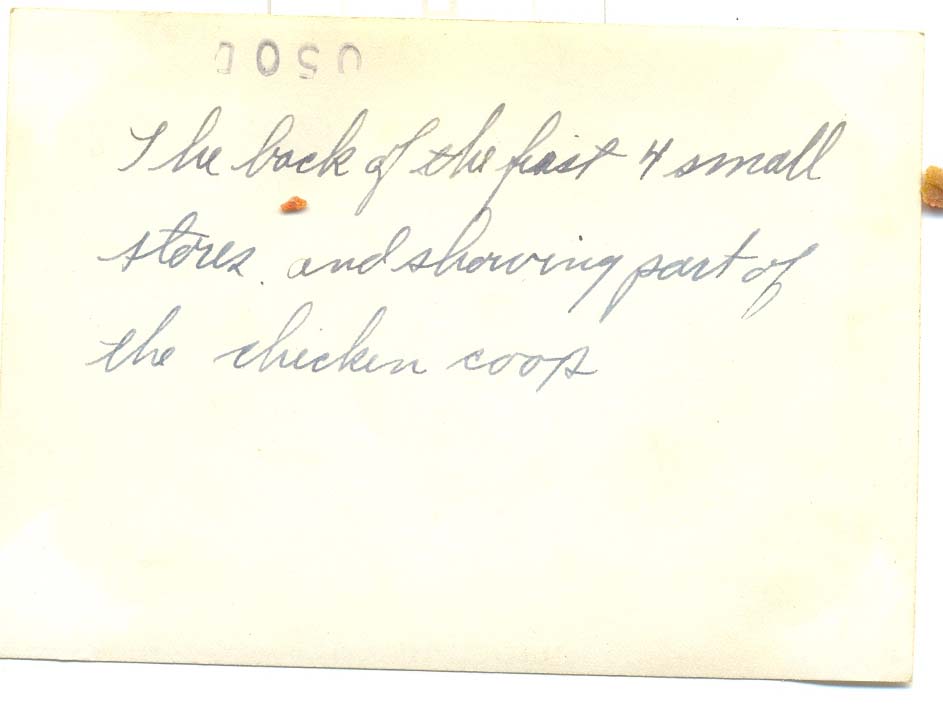 The back of the first 4 small
stores and showing part of
the chicken coop